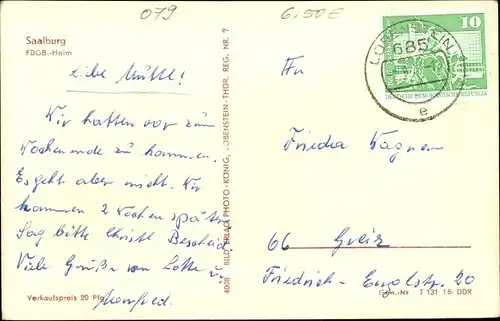 079
6,50 €
Saalburg
FDGB.-Heim
Liebe Mutti!
Wir hatten vor zum
Wochenende zu kommen.
Es geht aber nicht. Wir
kommen 2 Wochen später
Sag bitte Christl Bescheid
Viele Grüße von Lotte u.
Manfred.
Verkaufspreis 20 Pfg.
BILD UND VERLAG PHOTO-KÖNIG, LOBENSTEIN-THÜR. REG. NR. 7
10
LOBENSTEIN
685
e
DEUTSCHE DEMOKRATISCHE REPUBLIK
Frieda Wagner
66 Greiz
Friedrich-Engelstr. 20
Gen.-Nr. T 131 16 DDR